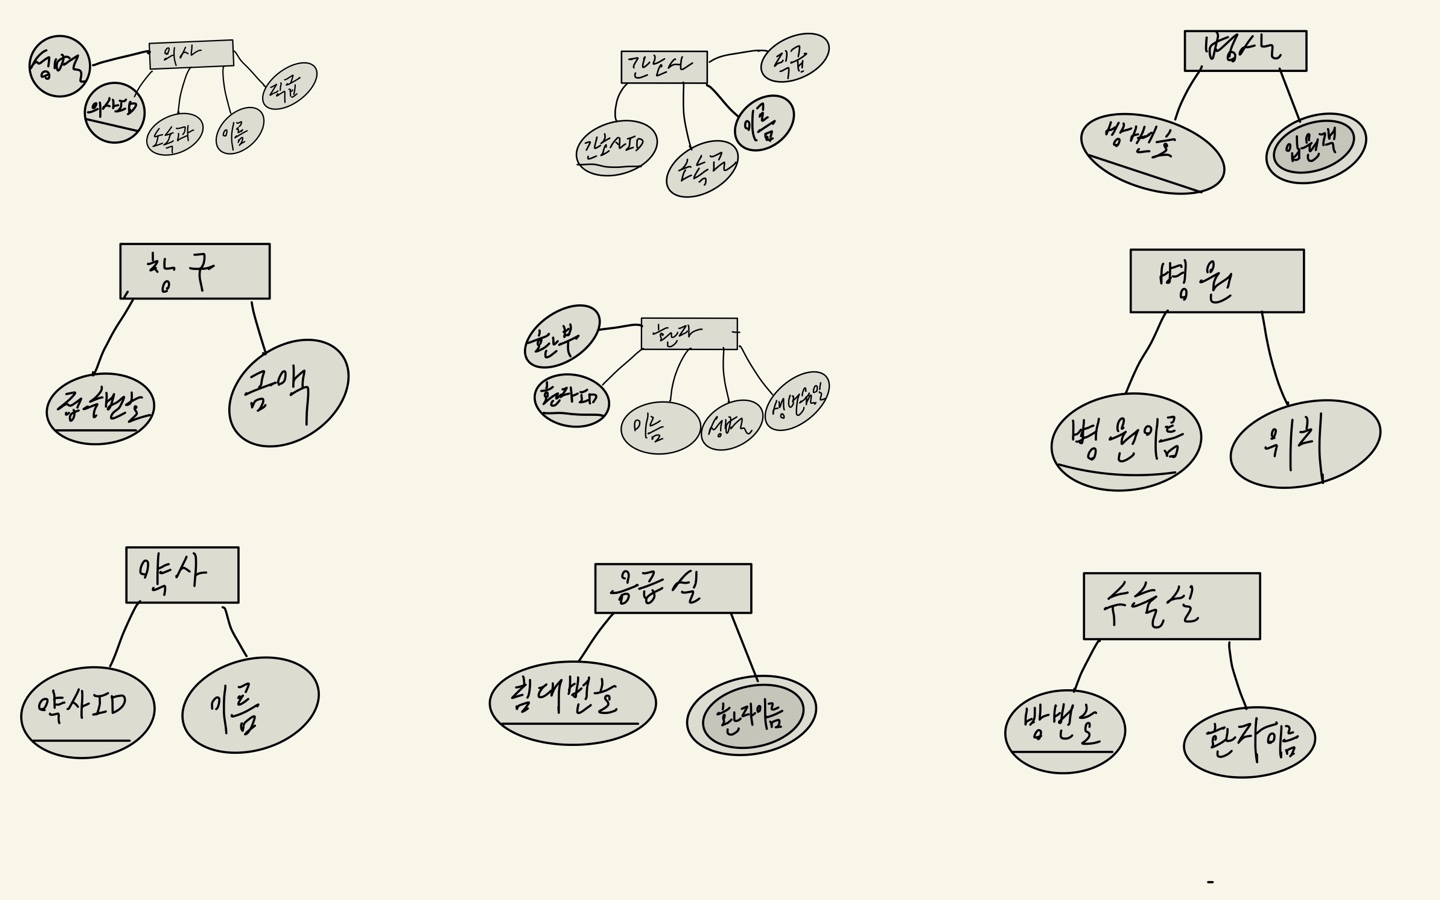 의사
성별
의사ID
소속과
이름
직급
간호사
간호사ID
소속과
이름
직급
병실
방번호
입원객
창구
접수번호
금액
환자
환부
환자ID
이름
성별
생년월일
병원
병원이름
위치
약사
약사ID
이름
응급실
침대번호
환자이름
수술실
방번호
환자이름